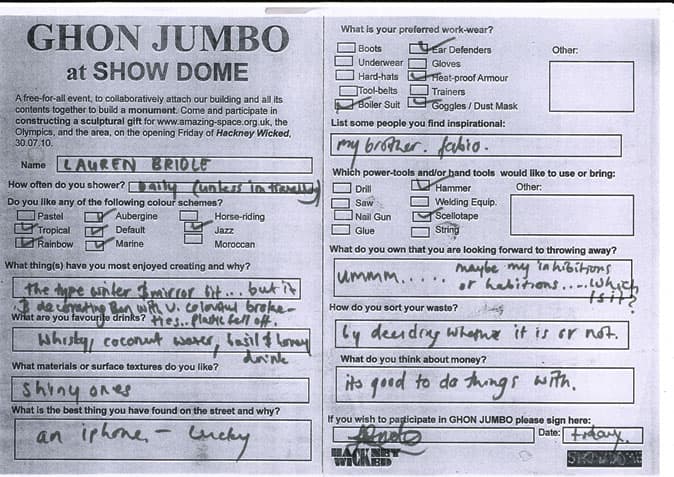 GHON JUMBO
at SHOW DOME
A free-for-all event, to collaboratively attach our building and all its
contents together to build a monument. Come and participate in
constructing a sculptural gift for www.amazing-space.org.uk, the
Olympics, and the area, on the opening Friday of Hackney Wicked,
30.07.10.
Name LAUREN BRIDLE
How often do you shower? Daily (unless im travelling)
Do you like any of the following colour schemes?
Pastel Aubergine Horse-riding
Tropical Default Jazz
Rainbow Marine Moroccan
What thing(s) have you most enjoyed creating and why?
the type writer & mirror bit... but it
& decorating Ben with v. colourful broke-
What are you favourite drinks? ties.. plastic fell off.
Whisky, coconut water, basil & honey
drink
What materials or surface textures do you like?
shiny ones
What is the best thing you have found on the street and why?
an iphone - Lucky
What is your preferred work-wear?
Boots Ear Defenders Other:
Underwear Gloves
Hard-hats Heat-proof Armour
Tool-belts Trainers
Boiler Suit Goggles / Dust Mask
List some people you find inspirational:
my brother. fabio.
Which power-tools and/or hand tools would like to use or bring:
Drill Hammer Other:
Saw Welding Equip.
Nail Gun Scellotape
Glue String
What do you own that you are looking forward to throwing away?
ummm..... maybe my inhibitions
or habitions..... which
is it?
How do you sort your waste?
by deciding whether it is or not.
What do you think about money?
its good to do things with.
If you wish to participate in GHON JUMBO please sign here:
Date: today.
HACKNEY
WICKED
SHOWDOME